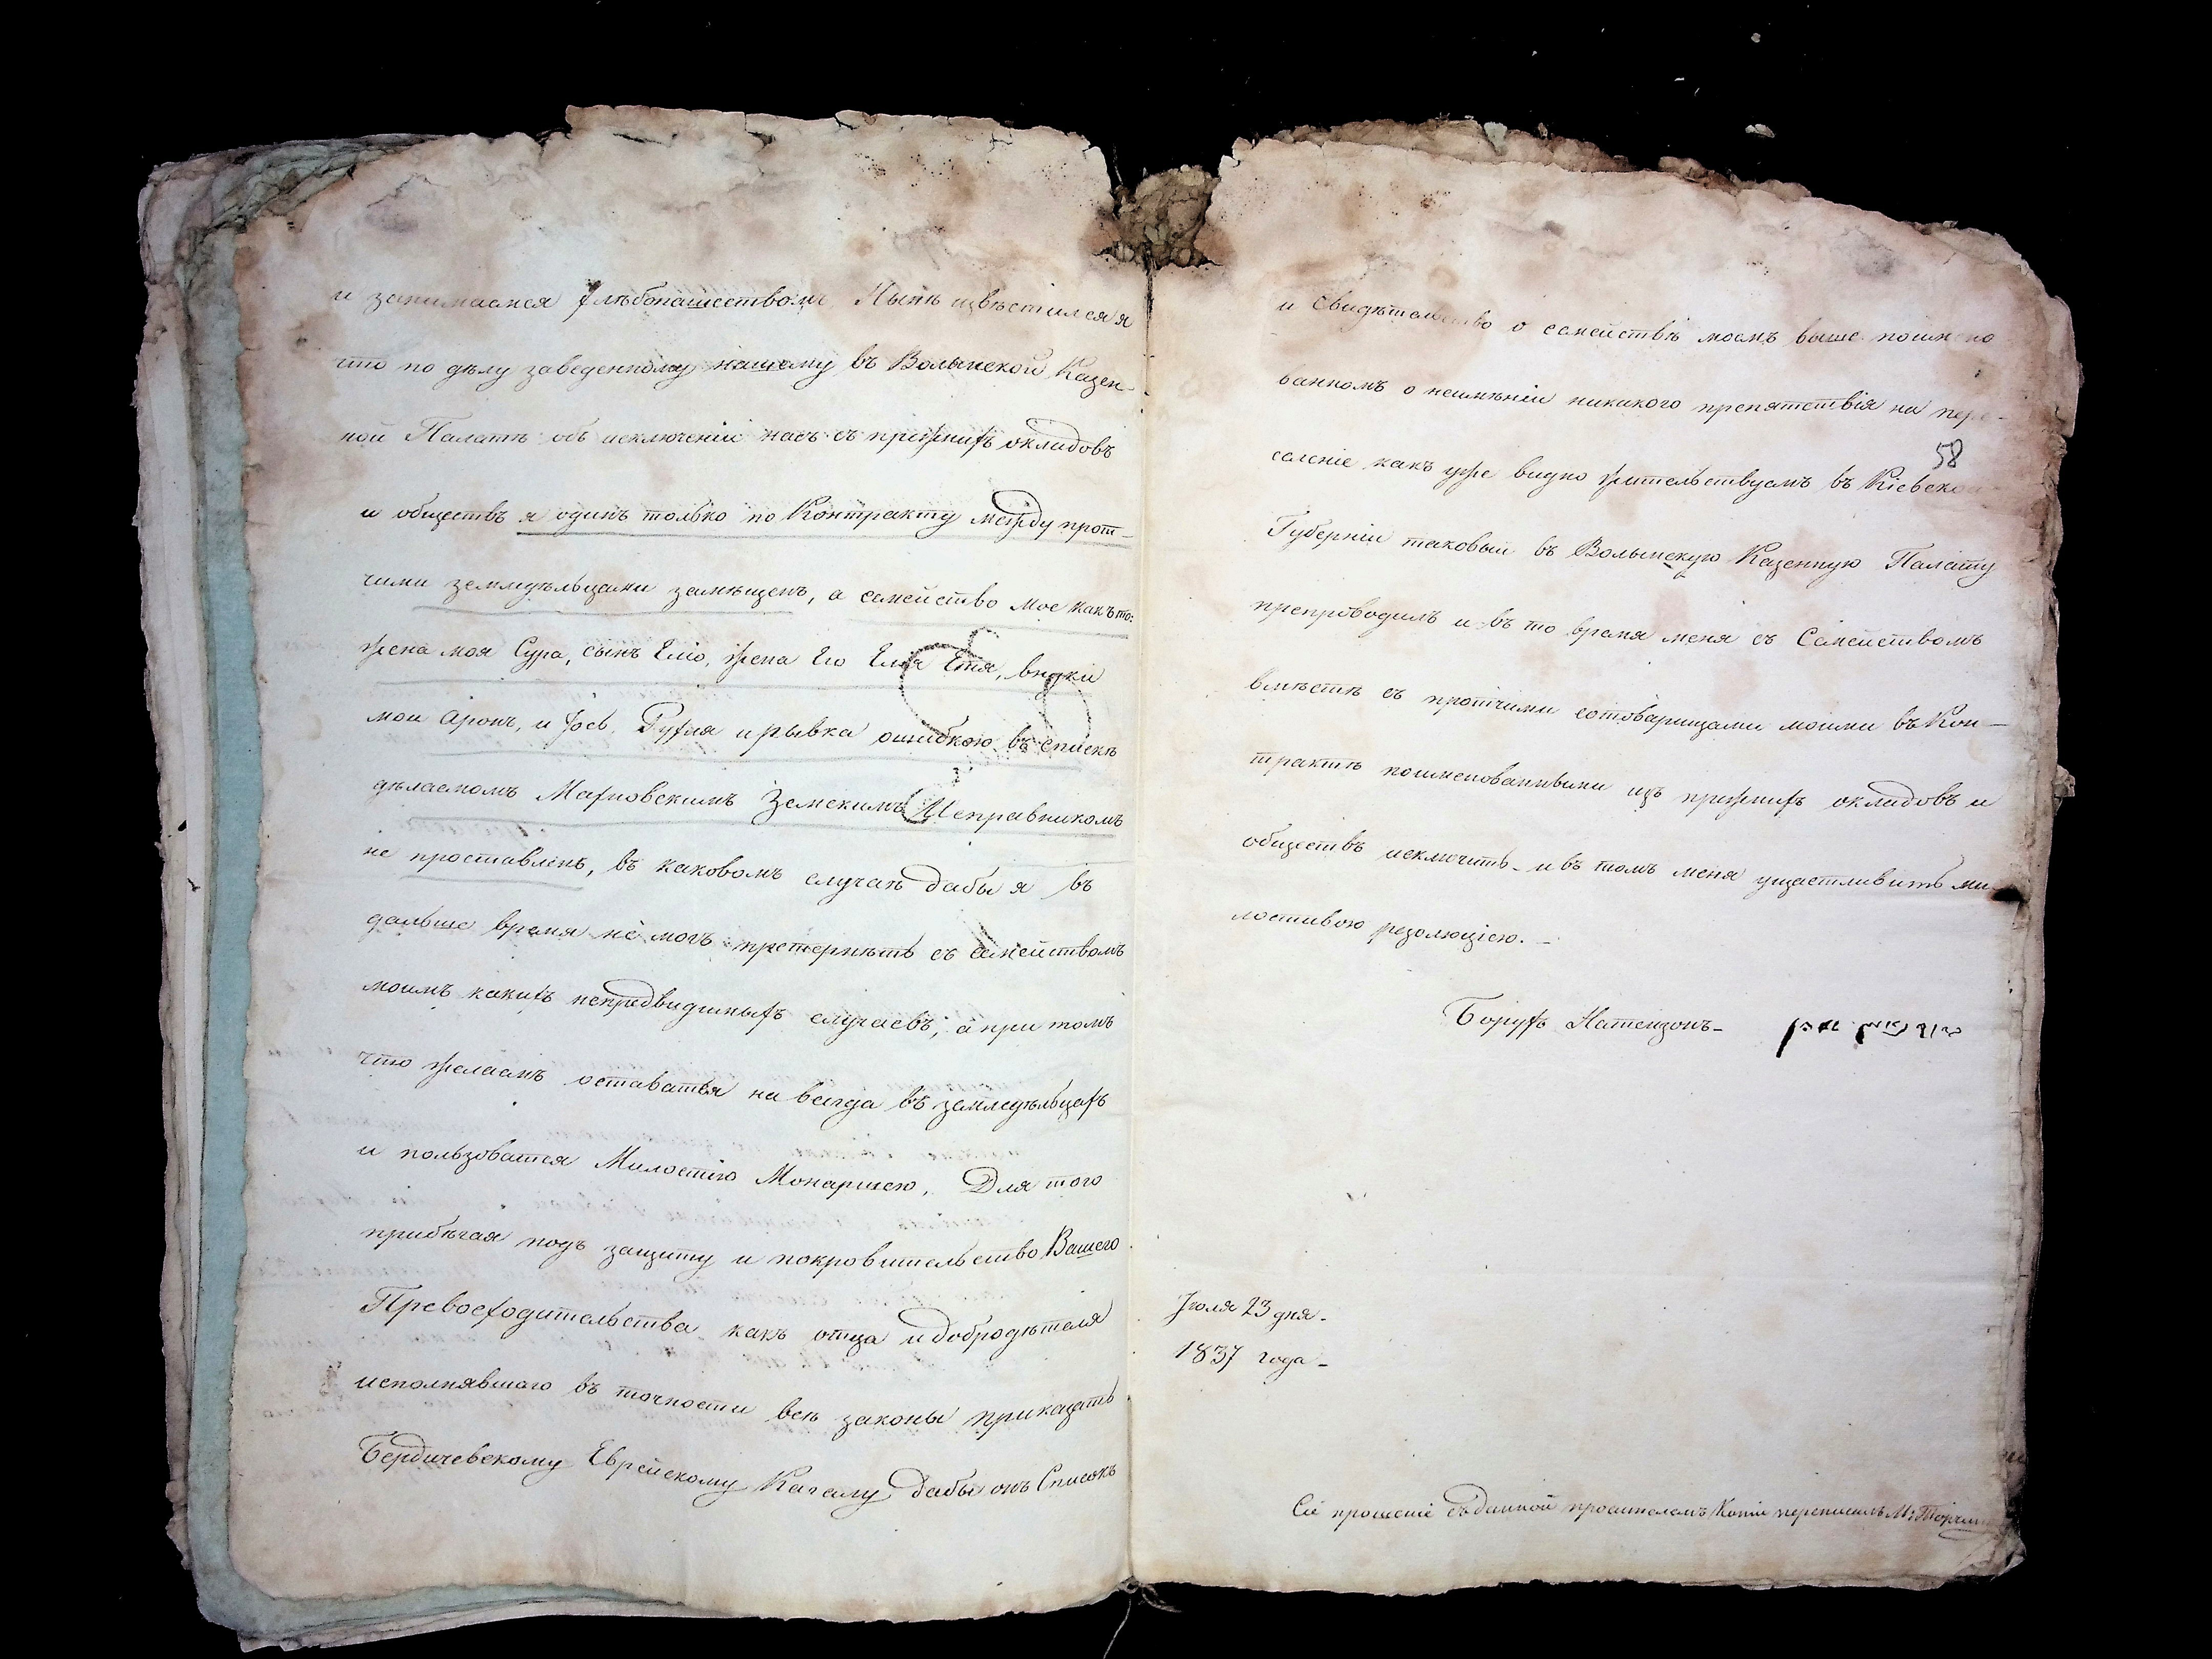 и занимаемся хлѣбопашествомъ. Нынѣ извѣстился я
что по дѣлу заведенному нашему въ Волынской Казен-
ной Палатѣ объ исключеніи насъ съ прежнихъ окладовъ
и обществъ я одинъ только по Контракту между прот-
чими земледѣльцами замѣщенъ, а семейство мое какъ то:
жена моя Сура, сынъ Еліо, жена Его Етя, внуки
мои Аронъ, и Іосъ, Рухля и рывка ошибкою въ спискѣ
дѣлаемомъ Махновскимъ Земскимъ Исправникомъ
не проставленъ, въ каковомъ случаѣ дабы я въ
дальше время не могъ претерпѣть съ семействомъ
моимъ какихъ непредвидимыхъ случаевъ, а при томъ
что желаемъ оставатья на всегда въ земледѣльцахъ
и пользоватся Милостію Монаршею, Для того
прибѣгая подъ защиту и покровительство Вашего
Превосходительства какъ отца и добродѣтеля
исполнявшаго въ точности всѣ законы приказать
Бердичевскому Еврейскому Кагалу дабы онъ Списокъ
и Свидѣтельство о семействѣ моемъ выше поимено
ванномъ о неимѣніи никакого препятствія на пере-
58
селеніе какъ уже видно жительствуемъ въ Кіевской
Губерніи таковыи въ Волынскую Казенную Палату
препроводилъ и въ то время меня съ Семействомъ
вмѣстѣ съ протчими сотоварищами моими въ Кон-
трактѣ поименованными изъ прежнихъ окладовъ и
обществъ исключить. и въ томъ меня ущастливить ми-
лостивою резолюціею. -
Борухъ Натензонъ-
Іюля 23 дня.
1837 года-
Сіе прошеніе съ данной просителемъ Копіи переписалъ М: